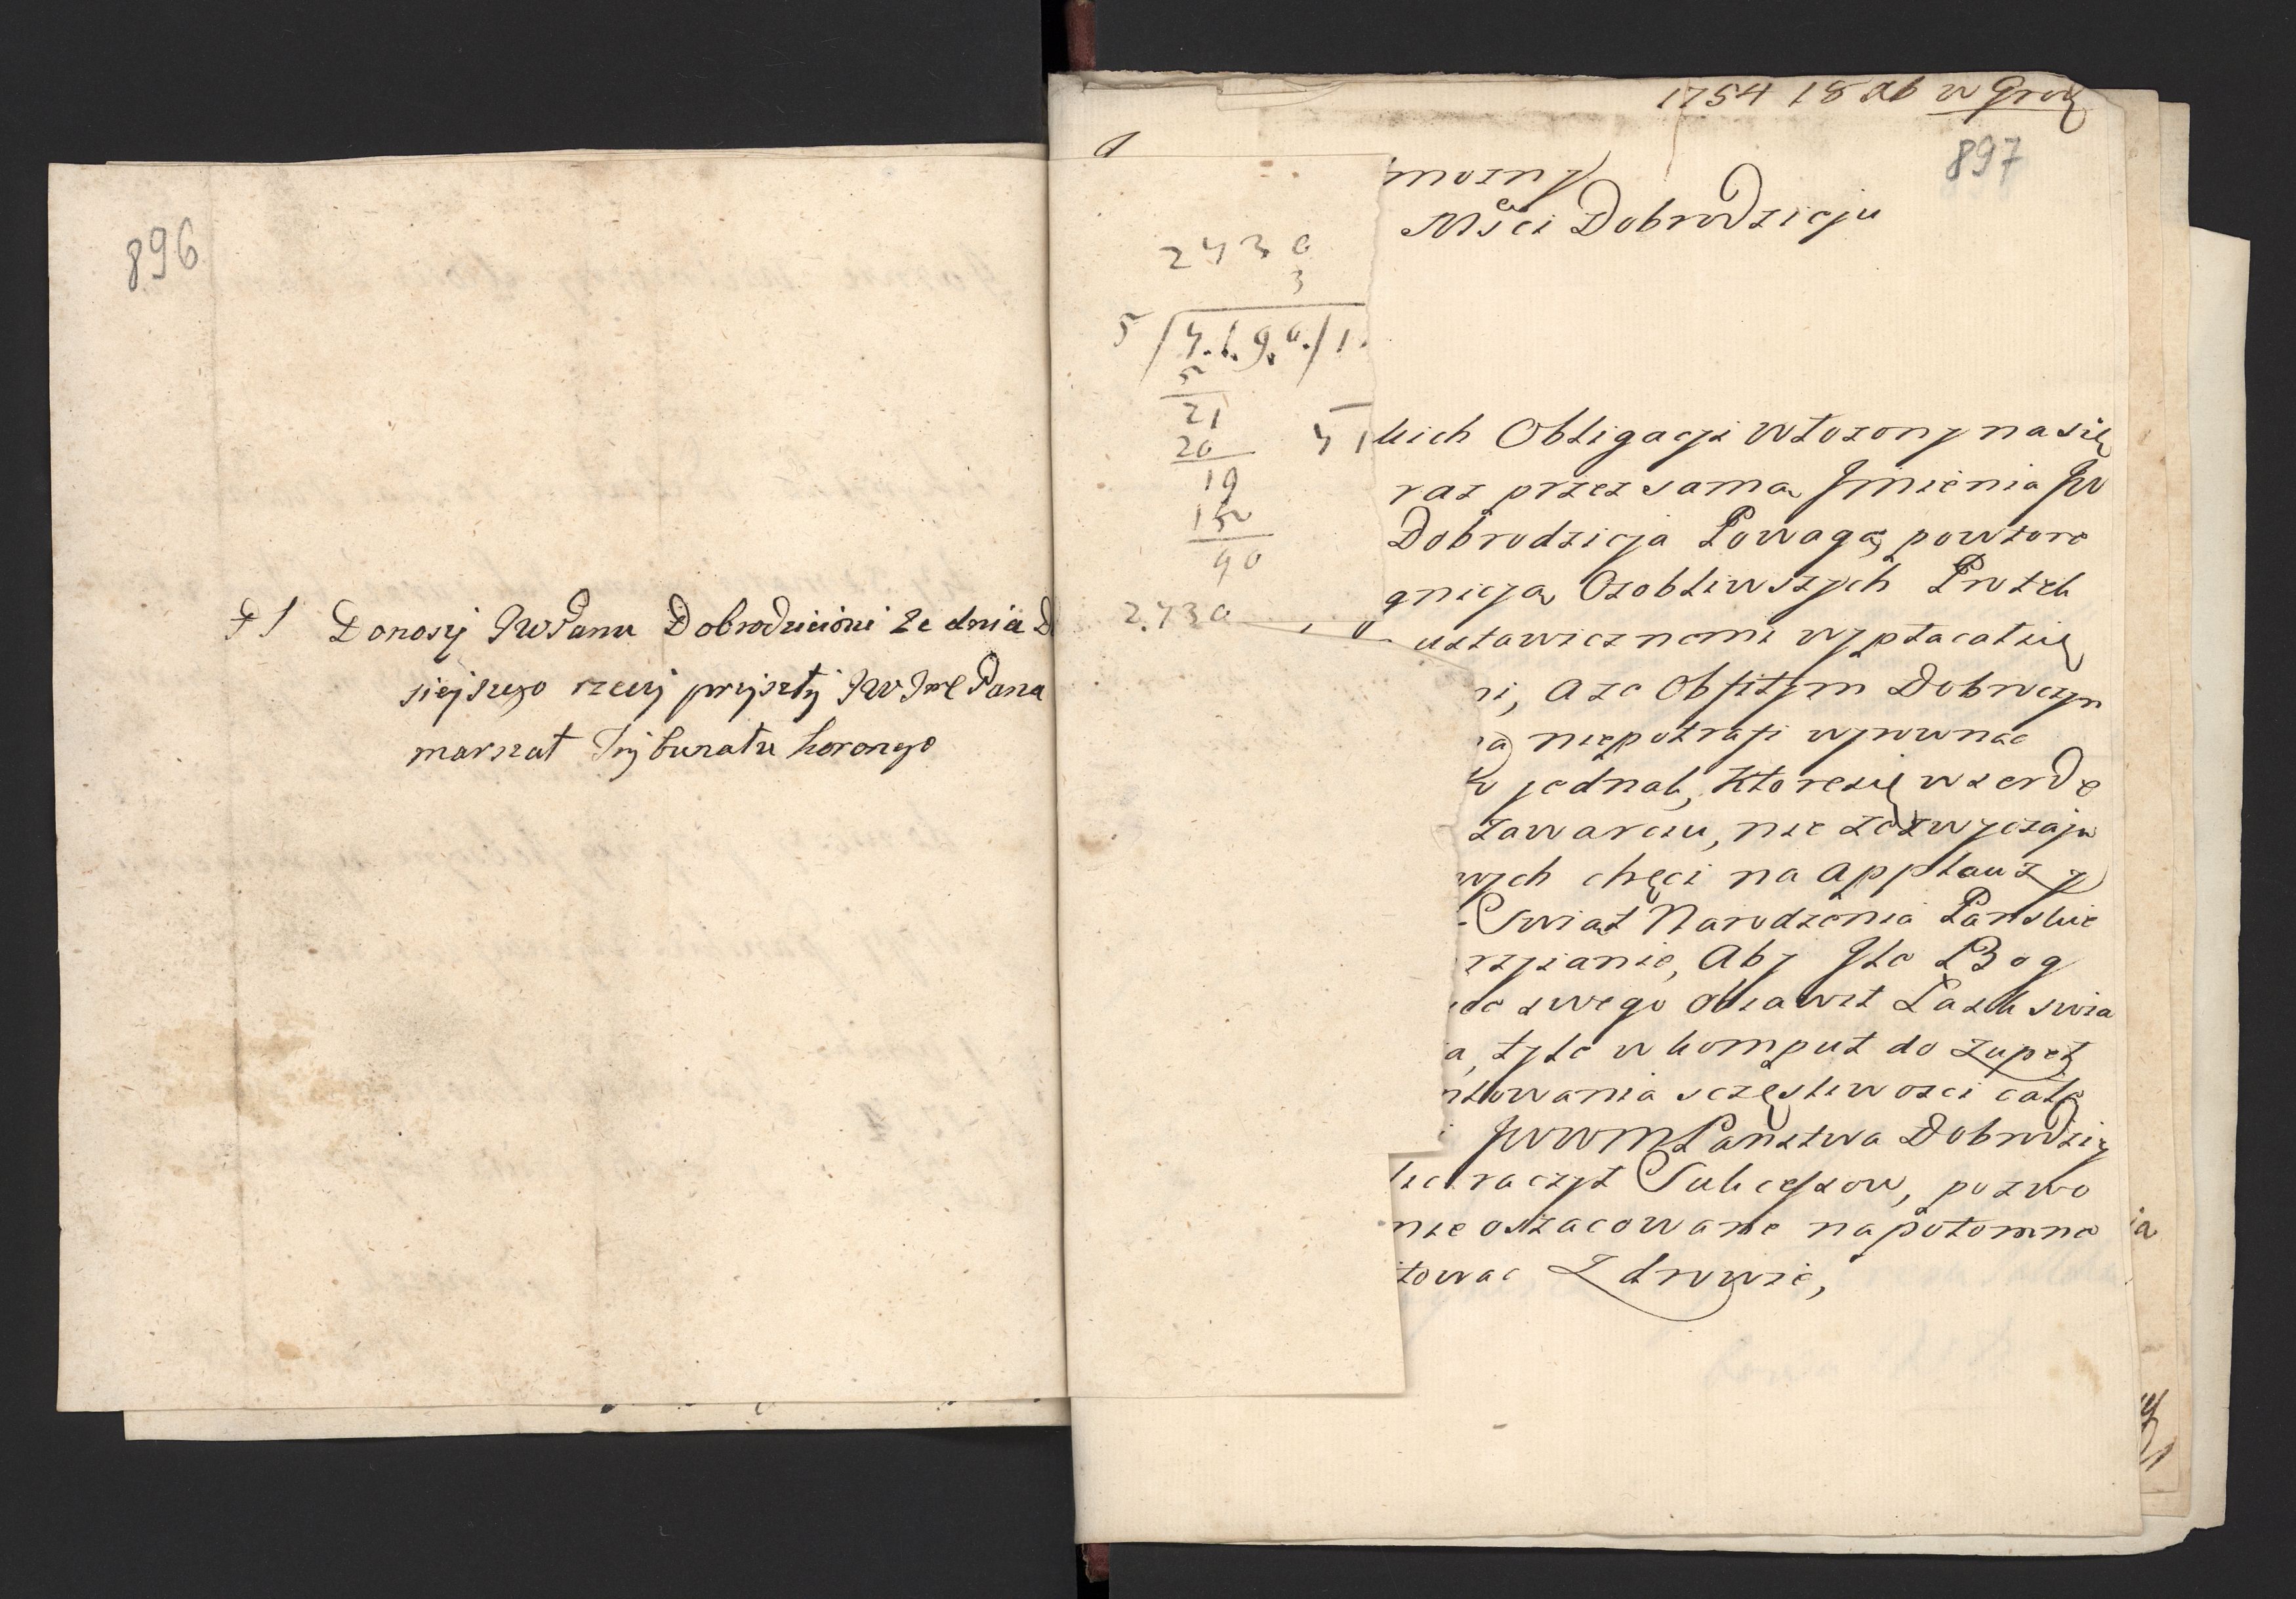 896
PS Donoszę JWPanu Dobrodzieiowi że dnia
siejszego rzecz przyszły JW Jmć Pana
marszał Trybunału koronego
1754 18 Xb w Grod
897
Mści Dobrodzieju
2430
3
5
21
20
19
15
40
2.430
kich Obligacji włożony na się
raz przez samą Jmienia JW
Dobrodzieja Powagę powtore
gnieją Osobliwszych Protek
ustawicznemi wypłacał się
ni, a że Obfitym Dobroczyn
nie potrafi wyrownac
jednak, ktore się w serde
zawarciu, nie ze zwyczaju
wych chęci na applauz
Swiąt Narodzenia Panskie
rszsianie, Aby Jle Bog
swego objawił Łask swia
a, tyle w komput do zupeł
ntowania sczęsliwosci całe
JWWMPanstwa Dobrodzie
raczył Sukcessow, pozwo
nie oszacowane na potomne
towac Zdrowie,